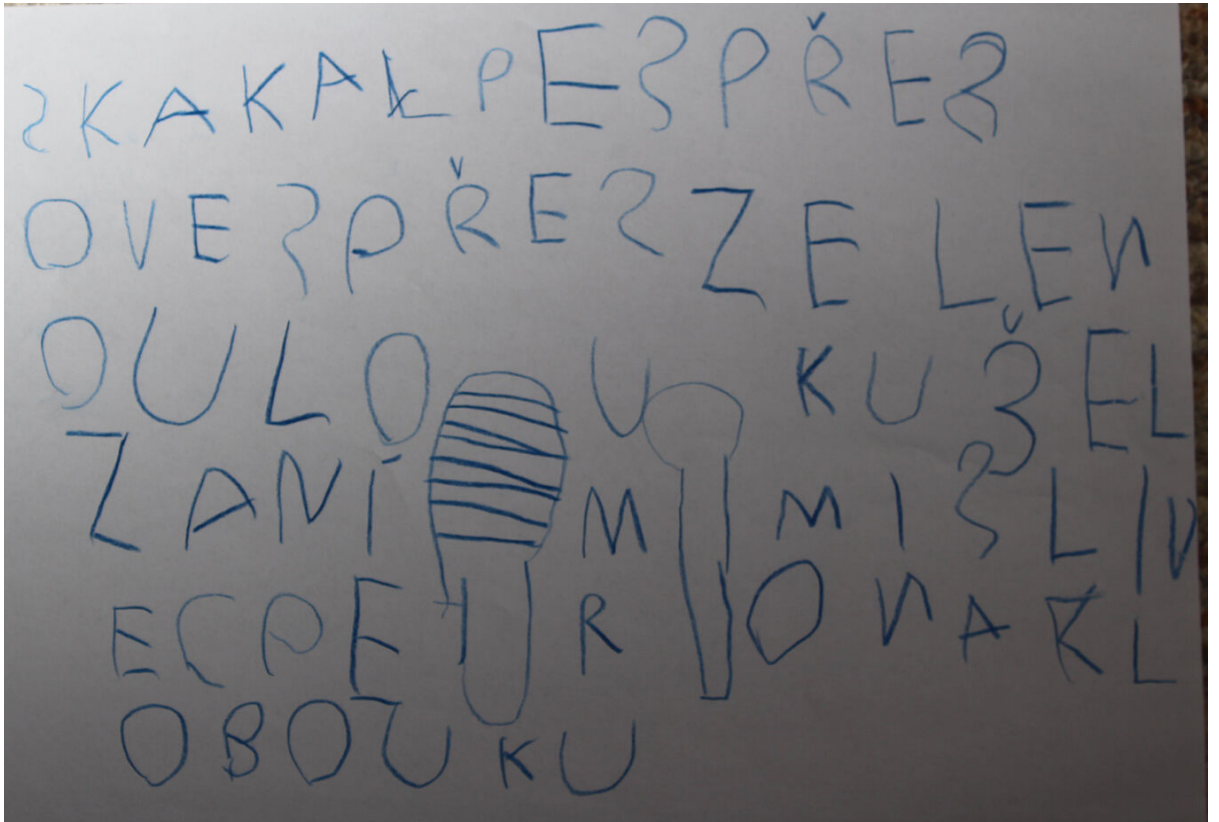 SKAKAL PES PŘES
OVES PŘES ZELEN
OU LOUKU ŠEL
ZANÍM MISLIV
EC PERO NA KL
OBOUKU